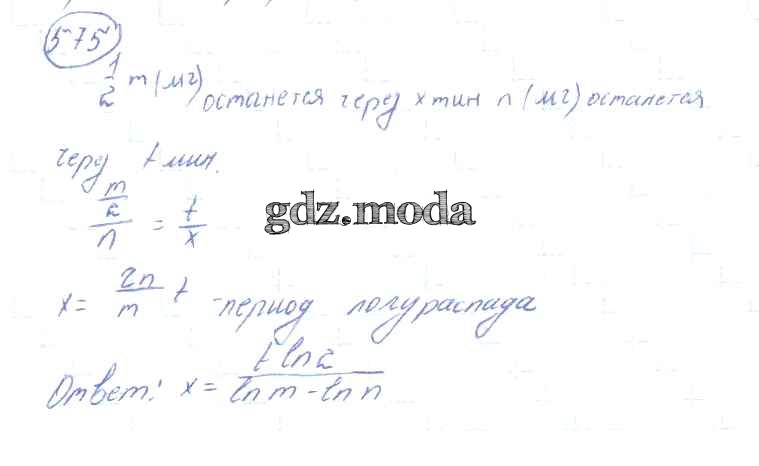 575
1/2 m (мг) останется через x мин n (мг) останется
через t мин.
(m/2)/n = t/x
gdz.moda
x = 2n/m t - период полураспада
Ответ: x = t ln 2 / (ln m - ln n)